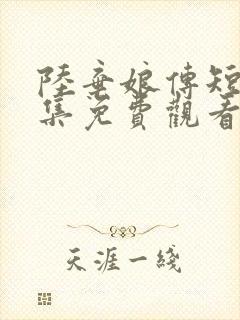 陸棄娘傳短
集免費觀看
天涯一綫